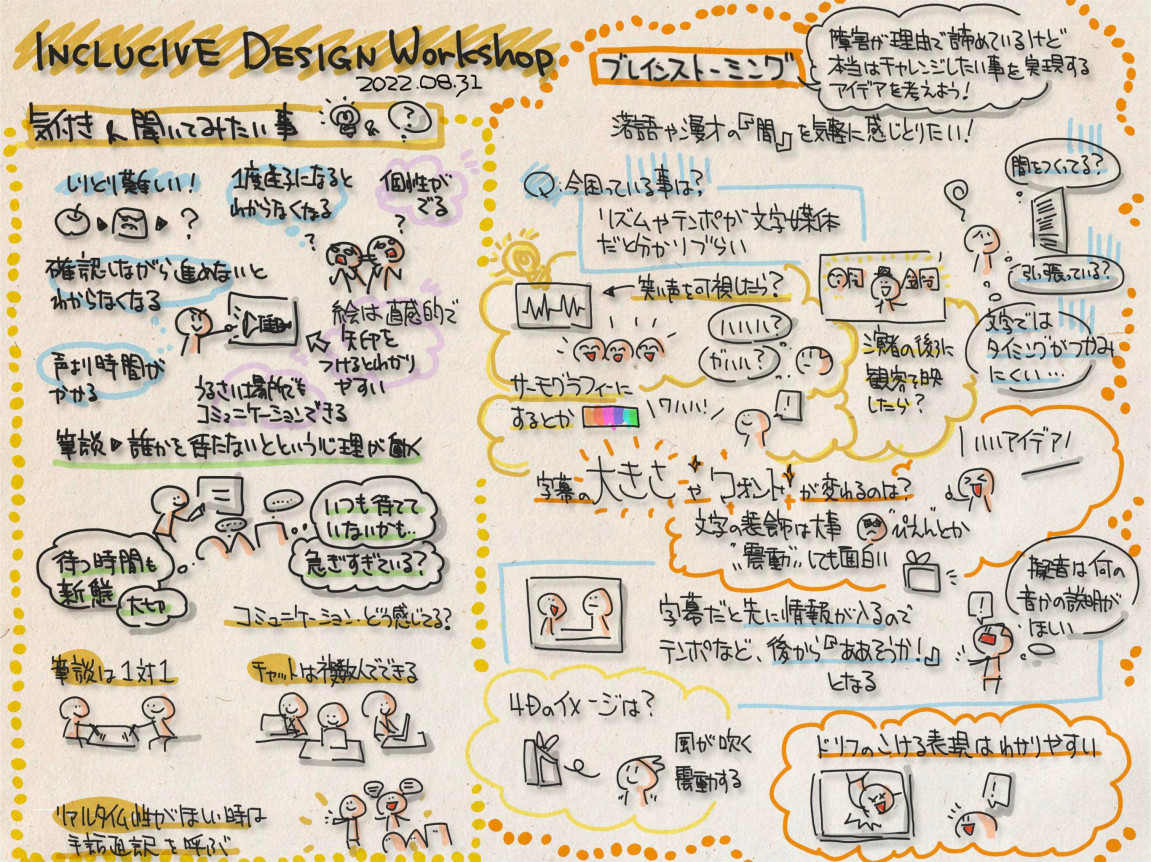 INCLUCIVE DESIGN Workshop
2022.08.31
気付き & 聞いてみたい事 & ?
しりとり難しい!
?
1度迷子になると
わからなくなる
個性が
でる
? ?
確認しながら進めないと
わからなくなる
絵は直感的で
矢印を
つけるとわかり
やすい
声より時間が
かかる
うるさい場所でも
コミュニケーションできる
筆談 誰かを待たないとという心理が働く
いつも待てて
いないかも..
急ぎすぎている?
待つ時間も
新鮮
大切
コミュニケーションどう感じてる?
筆談は1対1
チャットは複数人でできる
リアルタイム性がほしい時は
手話通訳を呼ぶ
ブレインストーミング
障害が理由で諦めているけど
本当はチャレンジしたい事を実現する
アイデアを考えよう!
落語や漫才の『間』を気軽に感じとりたい!
Q.今困っている事は?
リズムやテンポが文字媒体
だと分かりづらい
間をつくってる?
引っ張っている?
文字では
タイミングがつかみ
にくい…
笑い声を可視したら?
ハハハ?
ガハハ?
演者の後ろに
観客を映
したら?
サーモグラフィーに
するとか
ワハハ!
!
いいアイデア!
字幕の大きさやフォントが変わるのは?
文字の装飾は大事 "ぴえん"とか
"震動"しても面白い
字幕だと先に情報が入るので
テンポなど、後から『ああそうか!』
となる
擬音は何の
音かの説明が
ほしい
!
4Dのイメージは?
風が吹く
震動する
ドリフのこける表現はわかりやすい
!